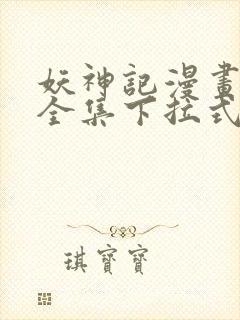 妖神記漫畫
全集下拉式
琪寶寶